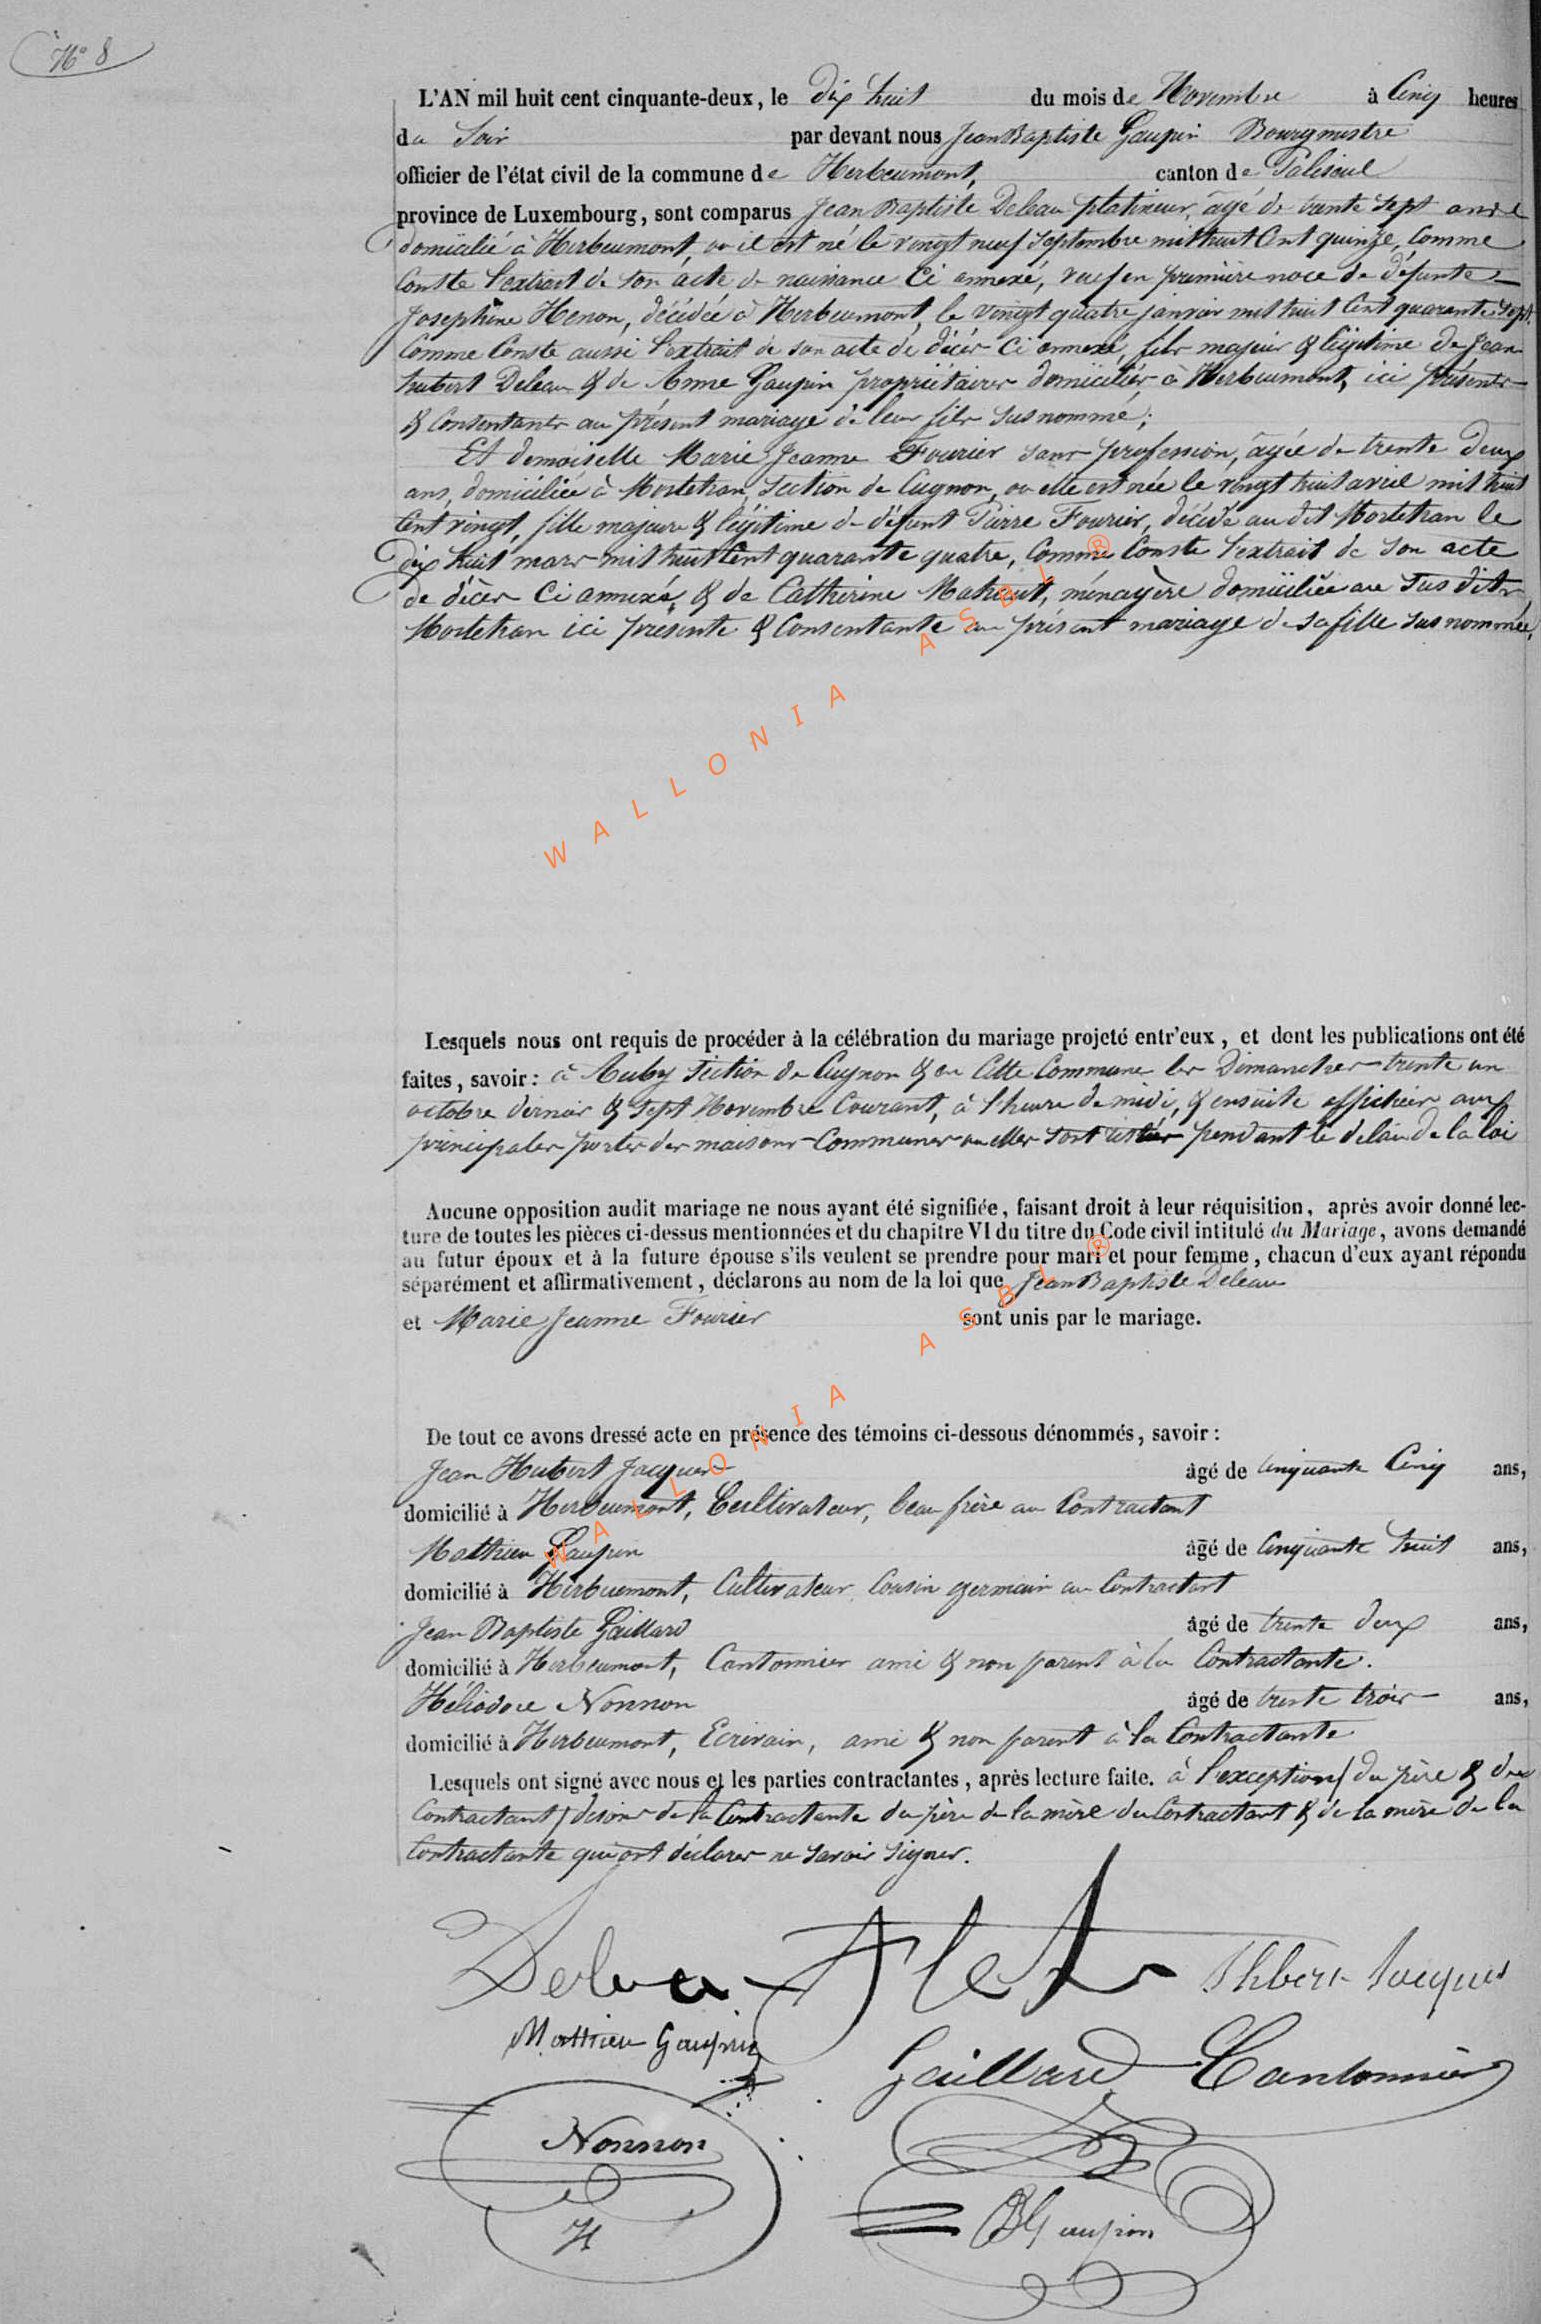 N° 8
L'AN mil huit cent cinquante-deux, le dix huit du mois de Novembre à Cinq heures
du Soir par devant nous Jean Baptiste Gaupin Bourgmestre
officier de l'état civil de la commune de Herbeumont, canton de Paliseul
province de Luxembourg, sont comparus Jean Baptiste Deleau platineur, âgé de trente sept ans
domicilié à Herbeumont, ou il est né le vingt neuf Septembre mil huit Cent quinze, Comme
Conste l'extrait de son acte de naissance Ci annexé, veuf en première noce de défunte
Josephine Henon, décédée à Herbeumont, le vingt quatre janvier mil huit Cent quarante sept
Comme Conste aussi l'extrait de son acte de décès Ci annexé, fils majeur & légitime de Jean
hubert Deleau & de Anne Gaupin propriétaires domiciliés à Herbeumont, ici présents
& Consentants au présent mariage de leur fils susnommé;
Et demoiselle Marie Jeanne Fourier sans profession, âgée de trente deux
ans, domiciliée à Mortehan, section de Cugnon, ou elle est née le vingt huit avril mil huit
Cent vingt, fille majeure & légitime de défunt Pierre Fourier, décédé au dit Mortehan le
dix huit mars mil huit Cent quarante quatre, Comme Conste l'extrait de son acte
de décès Ci annexé, & de Catherine Mahaut, ménagère domiciliée au sus dit
Mortehan ici présente & Consentante au présent mariage de sa fille susnommée,
WALLONIA ASBL ®
Lesquels nous ont requis de procéder à la célébration du mariage projeté entr'eux, et dont les publications ont été
faites, savoir: à Auby section de Cugnon & en Cette Commune les Dimanches trente un
octobre dernier & sept Novembre Courant, à l'heure de midi, & ensuite affichées aux
principales portes des maisons Communes ou elles sont restées pendant le délai de la loi
Aucune opposition audit mariage ne nous ayant été signifiée, faisant droit à leur réquisition, après avoir donné lec-
ture de toutes les pièces ci-dessus mentionnées et du chapitre VI du titre du Code civil intitulé du Mariage, avons demandé
au futur époux et à la future épouse s'ils veulent se prendre pour mari et pour femme, chacun d'eux ayant répondu
séparément et affirmativement, déclarons au nom de la loi que Jean Baptiste Deleau
et Marie Jeanne Fourier sont unis par le mariage.
WALLONIA ASBL ®
De tout ce avons dressé acte en présence des témoins ci-dessous dénommés, savoir:
Jean Hubert Jacques âgé de Cinquante Cinq ans,
domicilié à Herbeumont, Cultivateur, beau frère au Contractant
Mathieu Gaupin âgé de Cinquante huit ans,
domicilié à Herbeumont, Cultivateur, Cousin germain au Contractant
Jean Baptiste Gaillard âgé de trente deux ans,
domicilié à Herbeumont, Cantonnier ami & non parent à la Contractante.
Héliodore Nonnon âgé de trente trois ans,
domicilié à Herbeumont, Ecrivain, ami & non parent à la Contractante
Lesquels ont signé avec nous et les parties contractantes, après lecture faite. à l'exception du père & du
Contractant de la Contractante du père de la mère du Contractant & de la mère de la
Contractante qui ont déclaré ne savoir signer.
Deleau
Hbert Jacques
Mathieu Gaupin
Gaillard Cantonnier
Nonnon
H
JB Gaupin